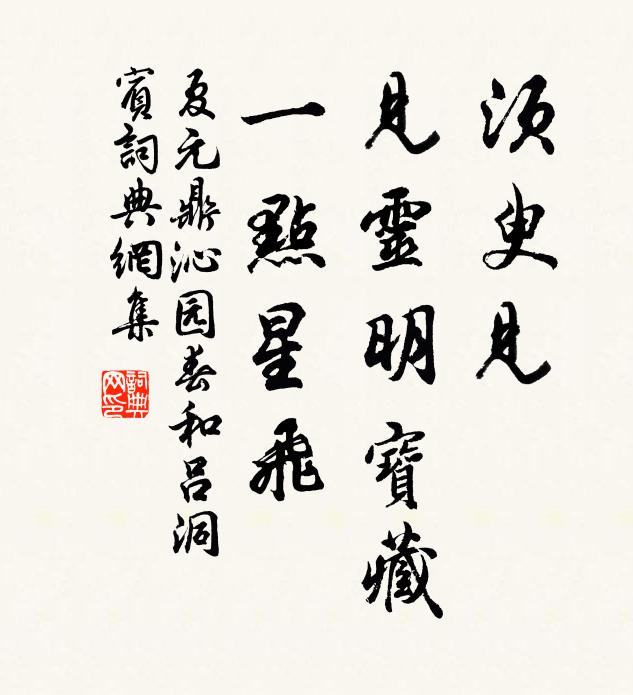 須臾見
見靈明寶藏
一點星飛
夏元鼎沁园春和吕洞
賓詞典網集
詞典
网印